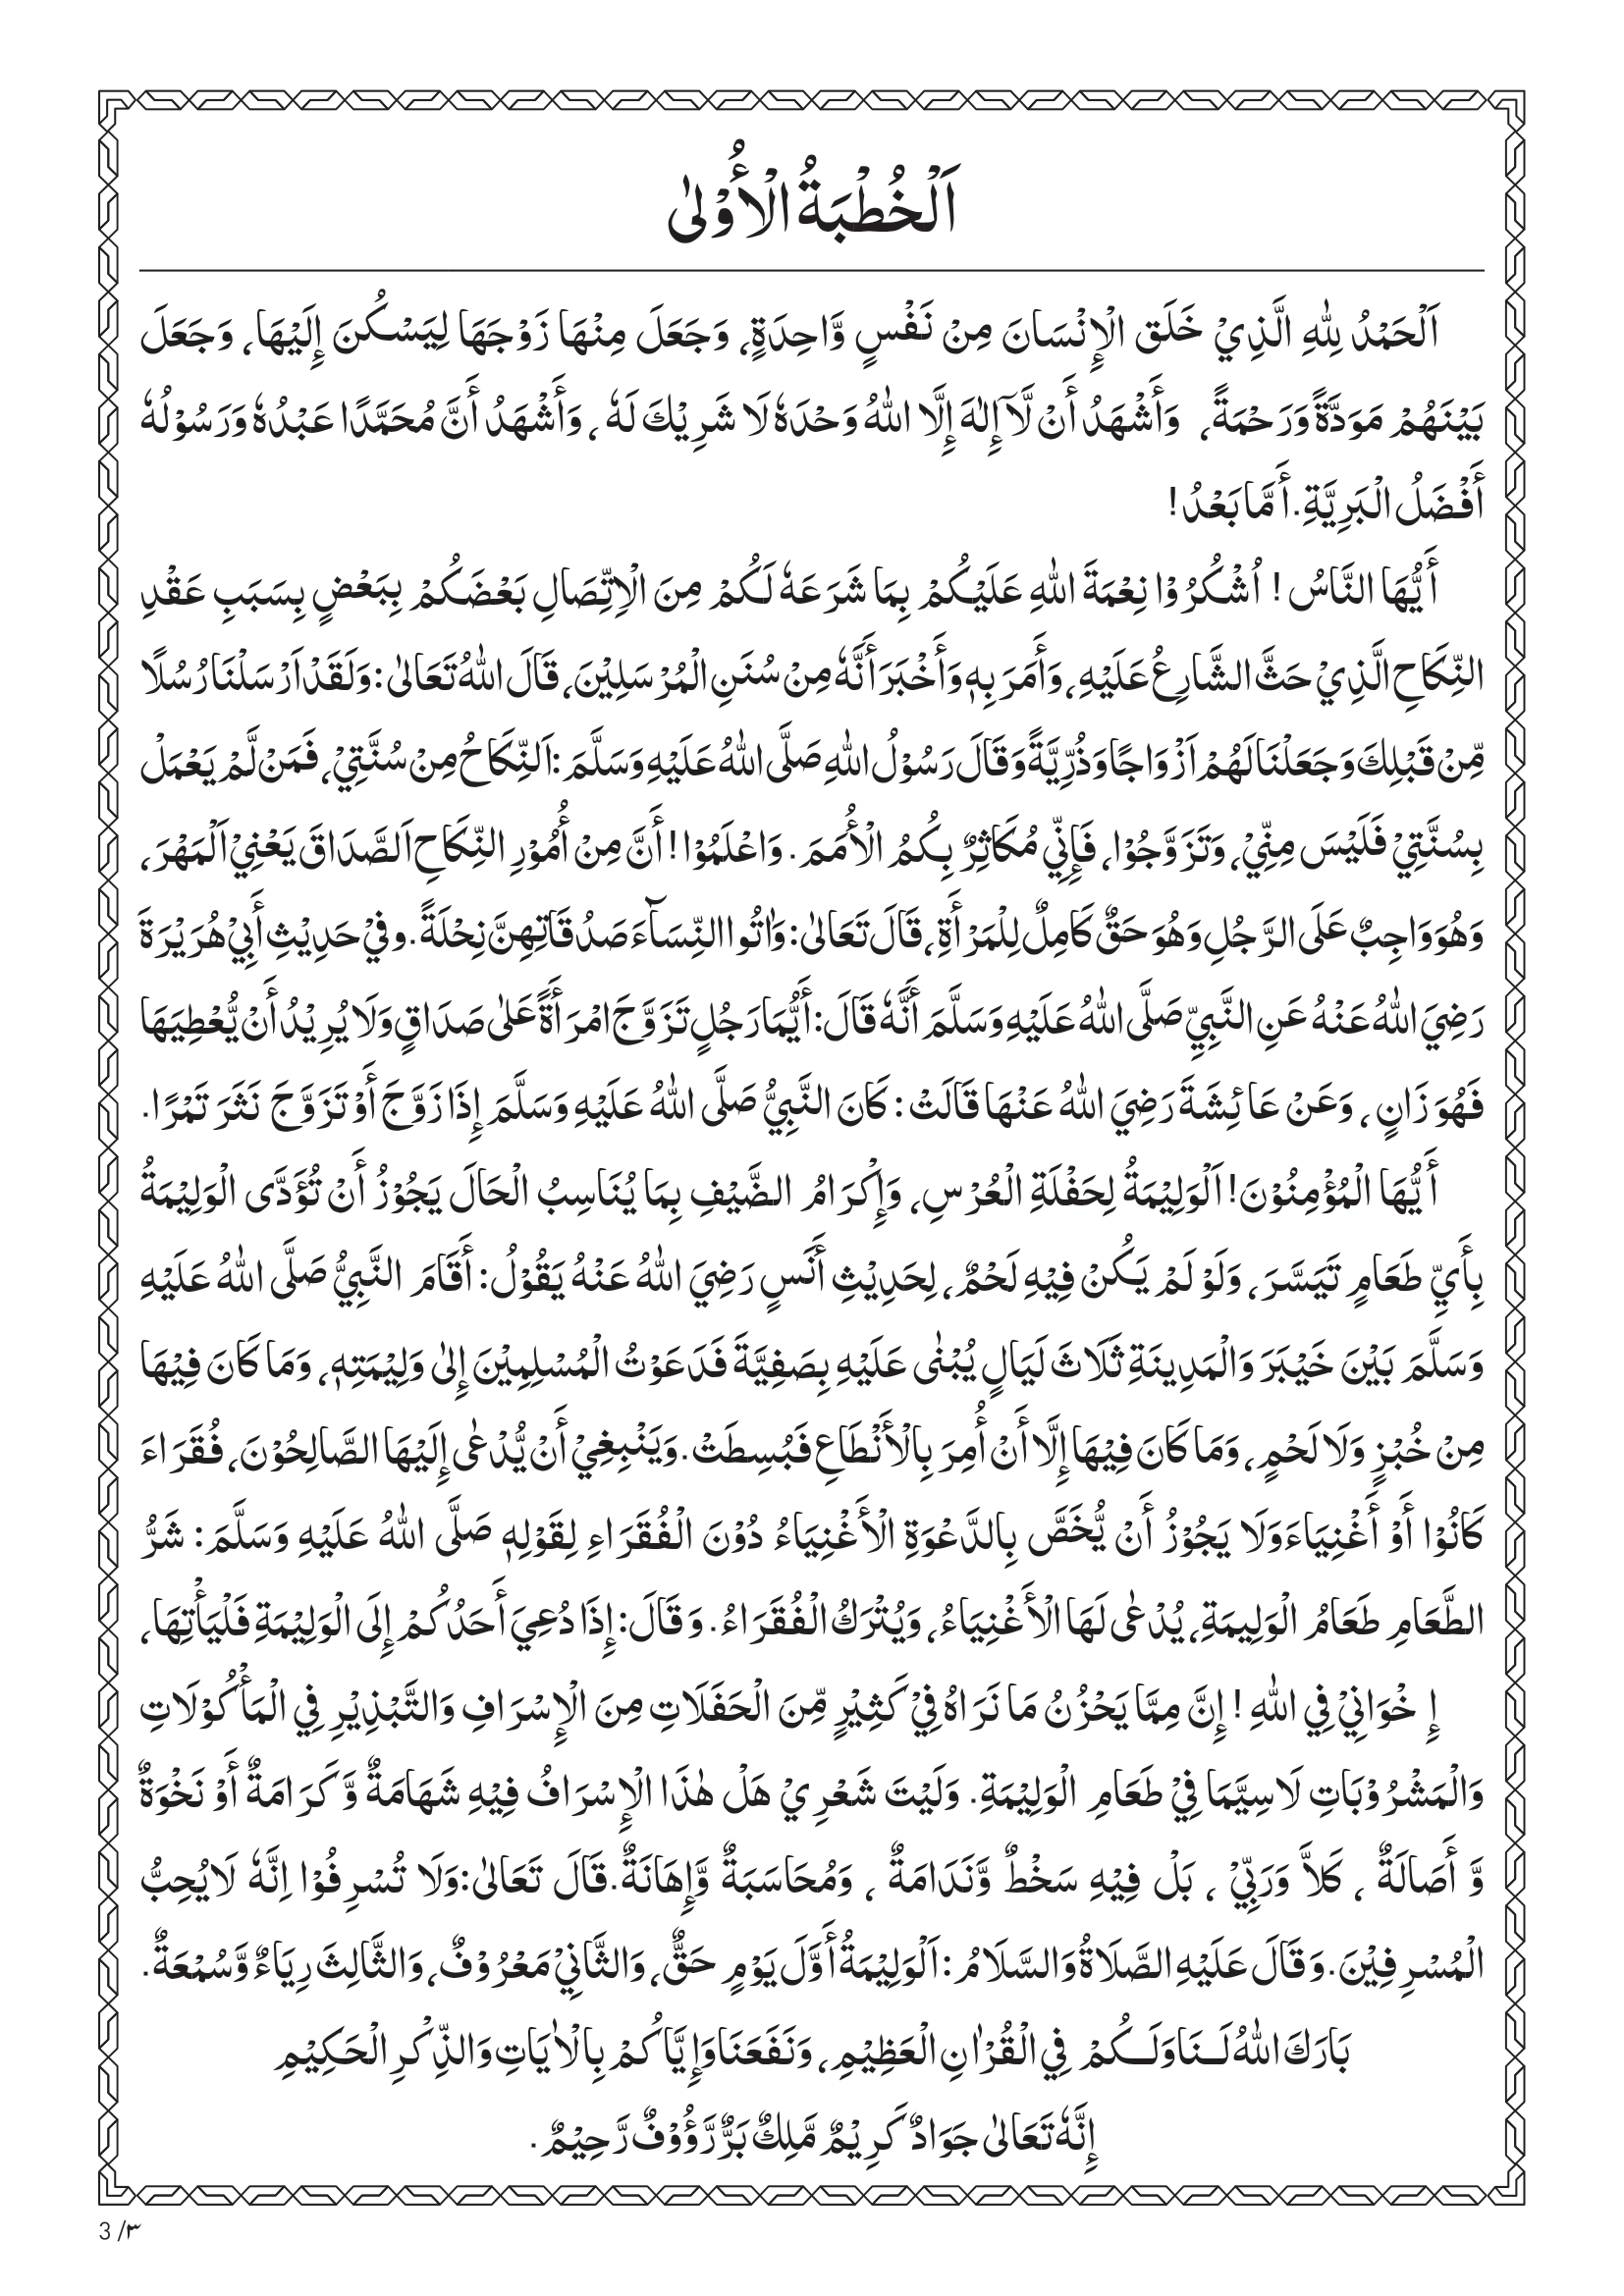 اَلْخُطْبَةُ الْأُوْلٰى
اَلْحَمْدُ لِلّٰهِ الَّذِيْ خَلَقَ الْإِنْسَانَ مِنْ نَفْسٍ وَّاحِدَةٍ، وَجَعَلَ مِنْهَا زَوْجَهَا لِيَسْكُنَ إِلَيْهَا، وَجَعَلَ
بَيْنَهُمْ مَوَدَّةً وَرَحْمَةً، وَأَشْهَدُ أَنْ لَّآ إِلٰهَ إِلَّا اللهُ وَحْدَهٗ لَا شَرِيْكَ لَهٗ ، وَأَشْهَدُ أَنَّ مُحَمَّدًا عَبْدُهٗ وَرَسُوْلُهٗ
أَفْضَلُ الْبَرِيَّةِ. أَمَّا بَعْدُ !
أَيُّهَا النَّاسُ ! اُشْكُرُوْا نِعْمَةَ اللهِ عَلَيْكُمْ بِمَا شَرَعَهٗ لَكُمْ مِنَ الْاِتِّصَالِ بَعْضَكُمْ بِبَعْضٍ بِسَبَبِ عَقْدِ
النِّكَاحِ الَّذِيْ حَثَّ الشَّارِعُ عَلَيْهِ، وَأَمَرَ بِهٖ وَأَخْبَرَ أَنَّهٗ مِنْ سُنَنِ الْمُرْسَلِيْنَ، قَالَ اللهُ تَعَالٰى : وَلَقَدْ اَرْسَلْنَا رُسُلًا
مِّنْ قَبْلِكَ وَجَعَلْنَا لَهُمْ اَزْوَاجًا وَذُرِّيَّةً وَقَالَ رَسُوْلُ اللهِ صَلَّى اللهُ عَلَيْهِ وَسَلَّمَ : اَلنِّكَاحُ مِنْ سُنَّتِيْ، فَمَنْ لَّمْ يَعْمَلْ
بِسُنَّتِيْ فَلَيْسَ مِنِّيْ، وَتَزَوَّجُوْا، فَإِنِّي مُكَاثِرٌ بِكُمُ الْأُمَمَ . وَاعْلَمُوْا ! أَنَّ مِنْ أُمُوْرِ النِّكَاحِ اَلصَّدَاقَ يَعْنِيْ اَلْمَهْرَ،
وَهُوَ وَاجِبٌ عَلَى الرَّجُلِ وَهُوَ حَقٌّ كَامِلٌ لِلْمَرْأَةِ، قَالَ تَعَالٰى : وَاٰتُوا النِّسَآءَ صَدُقَاتِهِنَّ نِحْلَةً. وفيْ حَدِيْثِ أَبِيْ هُرَيْرَةَ
رَضِيَ اللهُ عَنْهُ عَنِ النَّبِيِّ صَلَّى اللهُ عَلَيْهِ وَسَلَّمَ أَنَّهٗ قَالَ : أَيُّمَا رَجُلٍ تَزَوَّجَ امْرَأَةً عَلٰى صَدَاقٍ وَلَا يُرِيْدُ أَنْ يُّعْطِيَهَا
فَهُوَ زَانٍ ، وَعَنْ عَائِشَةَ رَضِيَ اللهُ عَنْهَا قَالَتْ : كَانَ النَّبِيُّ صَلَّى اللهُ عَلَيْهِ وَسَلَّمَ إِذَا زَوَّجَ أَوْ تَزَوَّجَ نَثَرَ تَمْرًا.
أَيُّهَا الْمُؤْمِنُوْنَ! اَلْوَلِيْمَةُ لِحَفْلَةِ الْعُرْسِ، وَإِكْرَامُ الضَّيْفِ بِمَا يُنَاسِبُ الْحَالَ يَجُوْزُ أَنْ تُؤَدَّى الْوَلِيْمَةُ
بِأَيِّ طَعَامٍ تَيَسَّرَ، وَلَوْ لَمْ يَكُنْ فِيْهِ لَحْمٌ، لِحَدِيْثِ أَنَسٍ رَضِيَ اللهُ عَنْهُ يَقُوْلُ : أَقَامَ النَّبِيُّ صَلَّى اللهُ عَلَيْهِ
وَسَلَّمَ بَيْنَ خَيْبَرَ وَالْمَدِينَةِ ثَلَاثَ لَيَالٍ يُبْنٰى عَلَيْهِ بِصَفِيَّةَ فَدَعَوْتُ الْمُسْلِمِيْنَ إِلىٰ وَلِيْمَتِهٖ، وَمَا كَانَ فِيْهَا
مِنْ خُبْزٍ وَلَا لَحْمٍ، وَمَا كَانَ فِيْهَا إِلَّا أَنْ أُمِرَ بِالْأَنْطَاعِ فَبُسِطَتْ. وَيَنْبِغِيْ أَنْ يُّدْعٰى إِلَيْهَا الصَّالِحُوْنَ، فُقَرَاءَ
كَانُوْا أَوْ أَغْنِيَاءَ وَلَا يَجُوْزُ أَنْ يُّخَصَّ بِالدَّعْوَةِ الْأَغْنِيَاءُ دُوْنَ الْفُقَرَاءِ لِقَوْلِهٖ صَلَّى اللهُ عَلَيْهِ وَسَلَّمَ : شَرُّ
الطَّعَامِ طَعَامُ الْوَلِيمَةِ، يُدْعٰى لَهَا الْأَغْنِيَاءُ، وَيُتْرَكُ الْفُقَرَاءُ. وَقَالَ : إِذَا دُعِيَ أَحَدُكُمْ إِلَى الْوَلِيْمَةِ فَلْيَأْتِهَا،
إِخْوَانِيْ فِي اللهِ ! إِنَّ مِمَّا يَحْزُنُ مَا نَرَاهُ فِيْ كَثِيْرٍ مِّنَ الْحَفَلَاتِ مِنَ الْإِسْرَافِ وَالتَّبْذِيْرِ فِي الْمَأْكُوْلَاتِ
وَالْمَشْرُوْبَاتِ لَاسِيَّمَا فِيْ طَعَامِ الْوَلِيْمَةِ. وَلَيْتَ شَعْرِيْ هَلْ هٰذَا الْإِسْرَافُ فِيْهِ شَهَامَةٌ وَّكَرَامَةٌ أَوْ نَخْوَةٌ
وَّ أَصَالَةٌ ، كَلاَّ وَرَبِّيْ ، بَلْ فِيْهِ سَخْطٌ وَّنَدَامَةٌ ، وَمُحَاسَبَةٌ وَّإِهَانَةٌ. قَالَ تَعَالٰى : وَلَا تُسْرِفُوْا اِنَّهٗ لَا يُحِبُّ
الْمُسْرِفِيْنَ. وَقَالَ عَلَيْهِ الصَّلَاةُ وَالسَّلَامُ : اَلْوَلِيْمَةُ أَوَّلَ يَوْمٍ حَقٌّ، وَالثَّانِيْ مَعْرُوْفٌ، وَالثَّالِثَ رِيَاءٌ وَّسُمْعَةٌ.
بَارَكَ اللهُ لَنَا وَلَكُمْ فِي الْقُرْاٰنِ الْعَظِيْمِ، وَنَفَعَنَا وَإِيَّاكُمْ بِالْاٰيَاتِ وَالذِّكْرِ الْحَكِيْمِ
إِنَّهٗ تَعَالىٰ جَوَادٌ كَرِيْمٌ مَّلِكٌ بَرٌّ رَّؤُوْفٌ رَّحِيْمٌ.
3 /٣